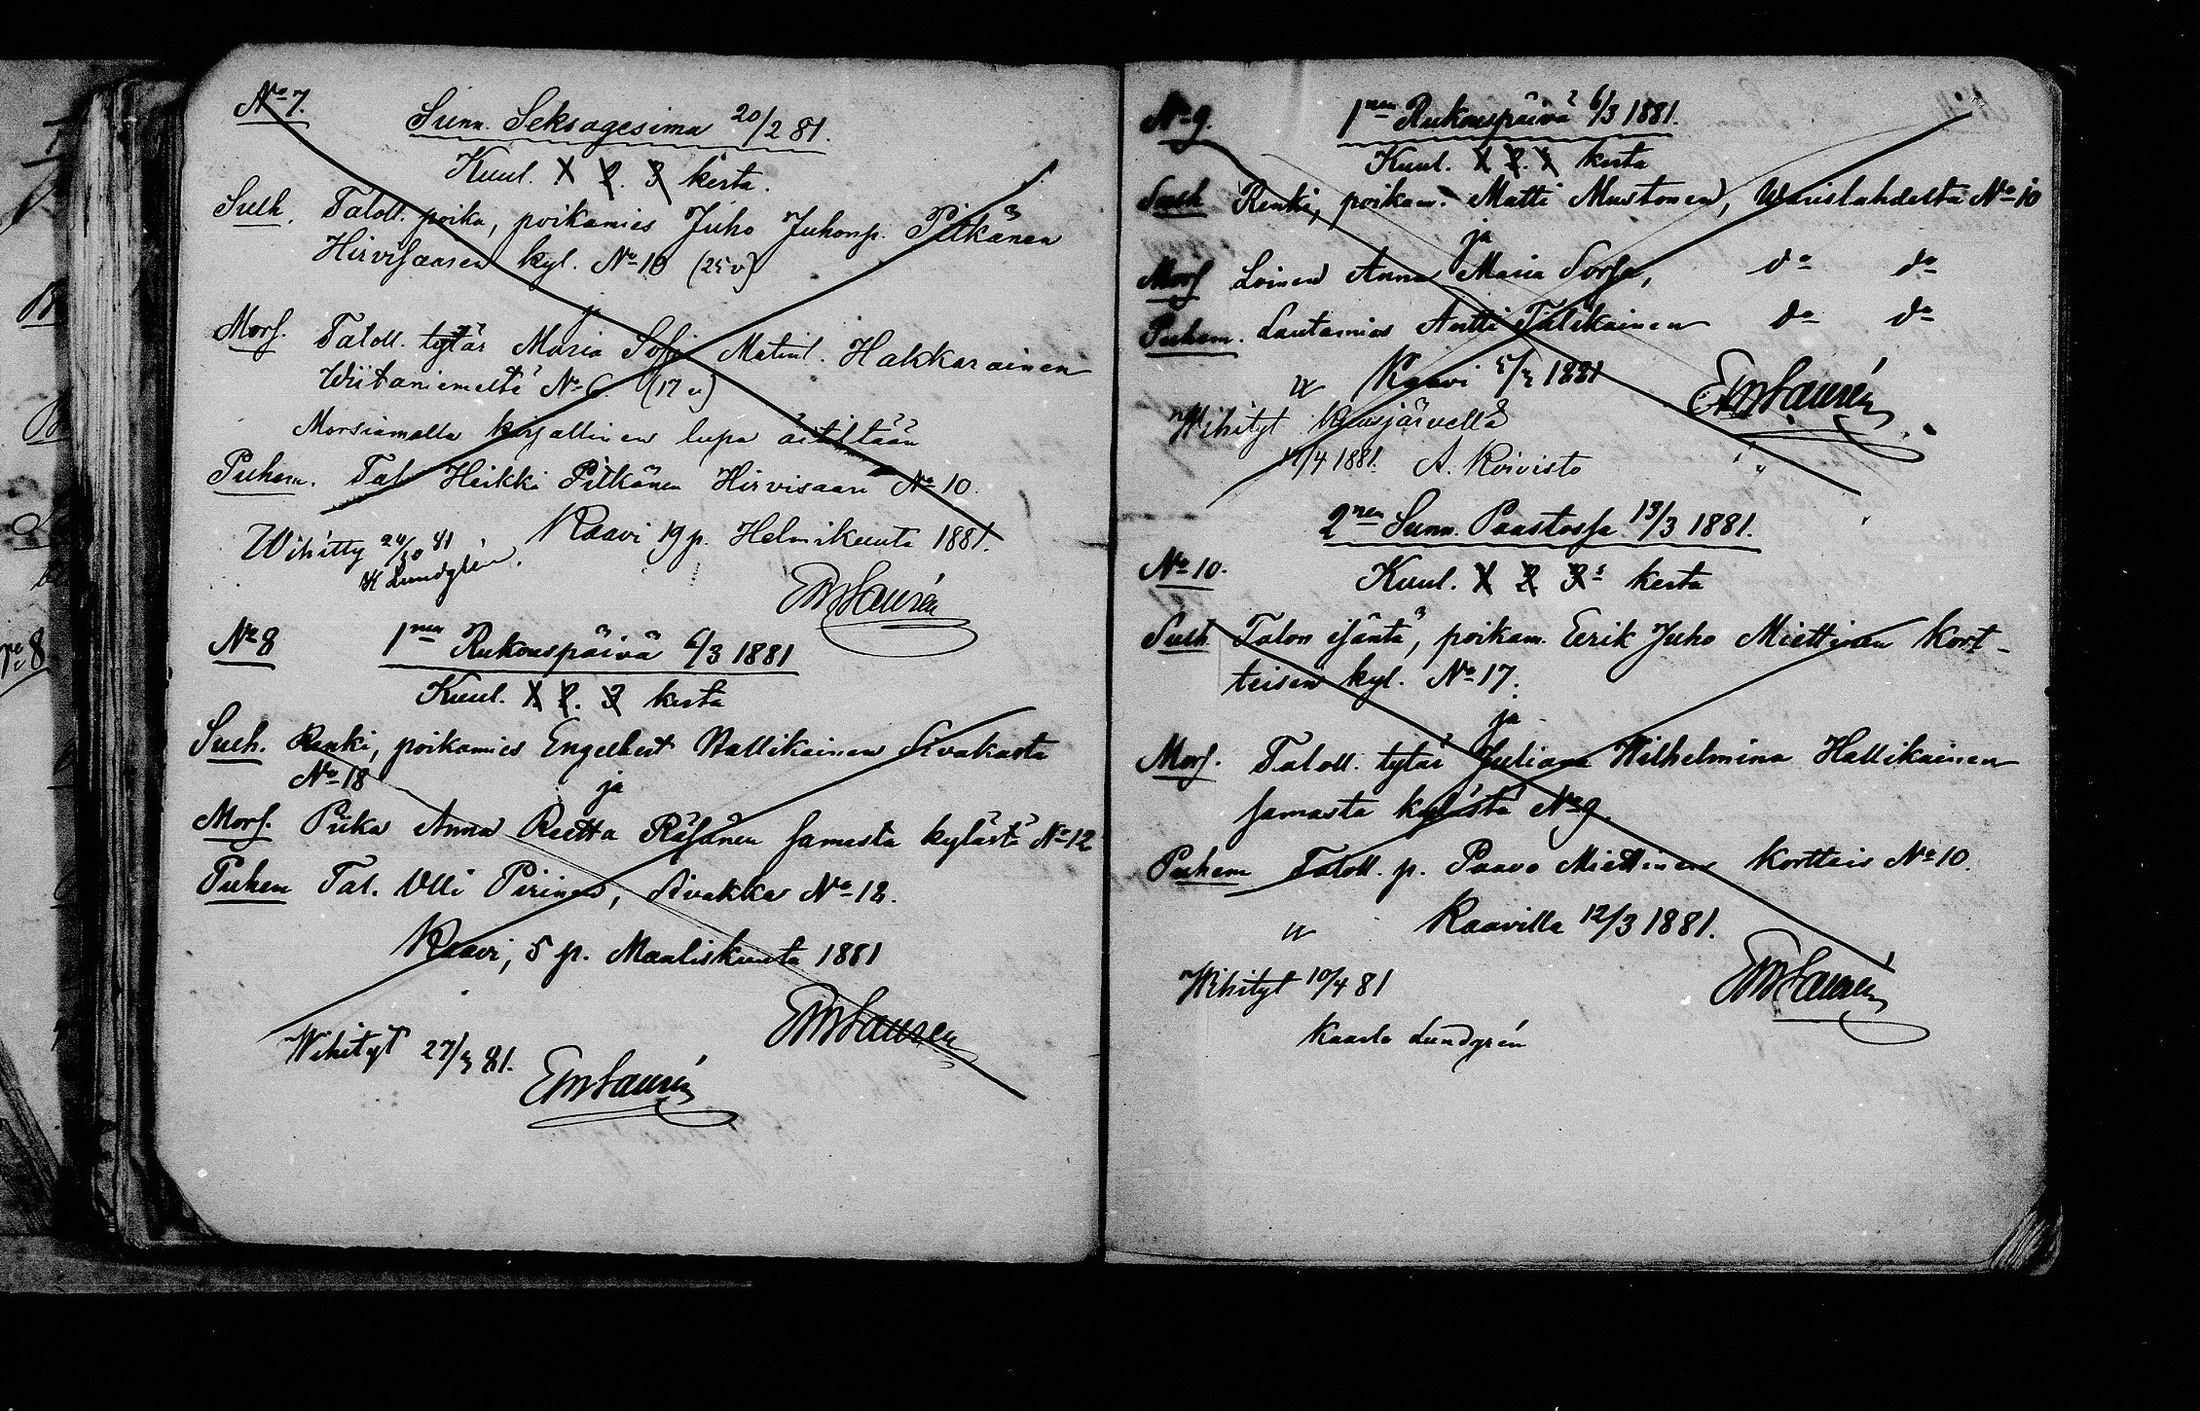 No 7.
Sunn. Seksagesima 20/2 81.
Kuul. 1 2. 3 kerta.
Sulh. Taloll. poika, poikamies Juho Juhonp. Pitkänen
Hirvisaaren kyl. No 10 (25 v)
ja
Mors. Taloll. tytär Maria Sofia Matint. Hakkarainen
Wiitaniemeltä No 6. (17 v)
Morsiamella kirjallinen lupa äitiltään
Puhem. Tal. Heikki Pitkänen Hirvisaari No 10.
Kaavi 19 p. Helmikuuta 1881.
Wihitty 24/10 81
K Lundgrén.
EWLaurén
No 8
1nen Rukouspäivä 6/3 1881
Kuul. 1 2. 3 kerta
Sulh. Renki, poikamies Engelbert Hallikainen Sivakasta
No 18
ja
Mors. Piika Anna Reetta Räsänen samasta kylästä No 12
Puhem Tal. Olli Pirinen, Sivakka No 12.
Kaavi, 5 p. Maaliskuuta 1881
EWLaurén
Wihityt 27/3 81.
EWLaurén
No 9.
1nen Rukouspäivä 6/3 1881.
Kuul. 1 2. 3 kerta
Sulh Renki, poikam. Matti Mustonen, Warislahdelta No 10
ja
Mors Loinen Anna Maria Sorsa, do do
Puhem. Lautamies Antti Tiilikainen do do
Kaavi 5/3 1881
EWLaurén
Wihityt
17/4 1881. A. Koivisto
2nen Sunn. Paastossa 13/3 1881.
No 10.
Kuul. 1 2 3s kerta
Sulh Talon isäntä, poikam. Eerik Juho Miettinen Kort-
teisen kyl. No 17.
ja
Mors. Taloll. tytär Juliana Wilhelmina Hallikainen
samasta kylästä No 9.
Puhem Taloll. p. Paavo Miettinen Kortteis No 10.
Kaavilla 12/3 1881.
EWLaurén
Wihityt 10/4 81
Kaarlo Lundgrén